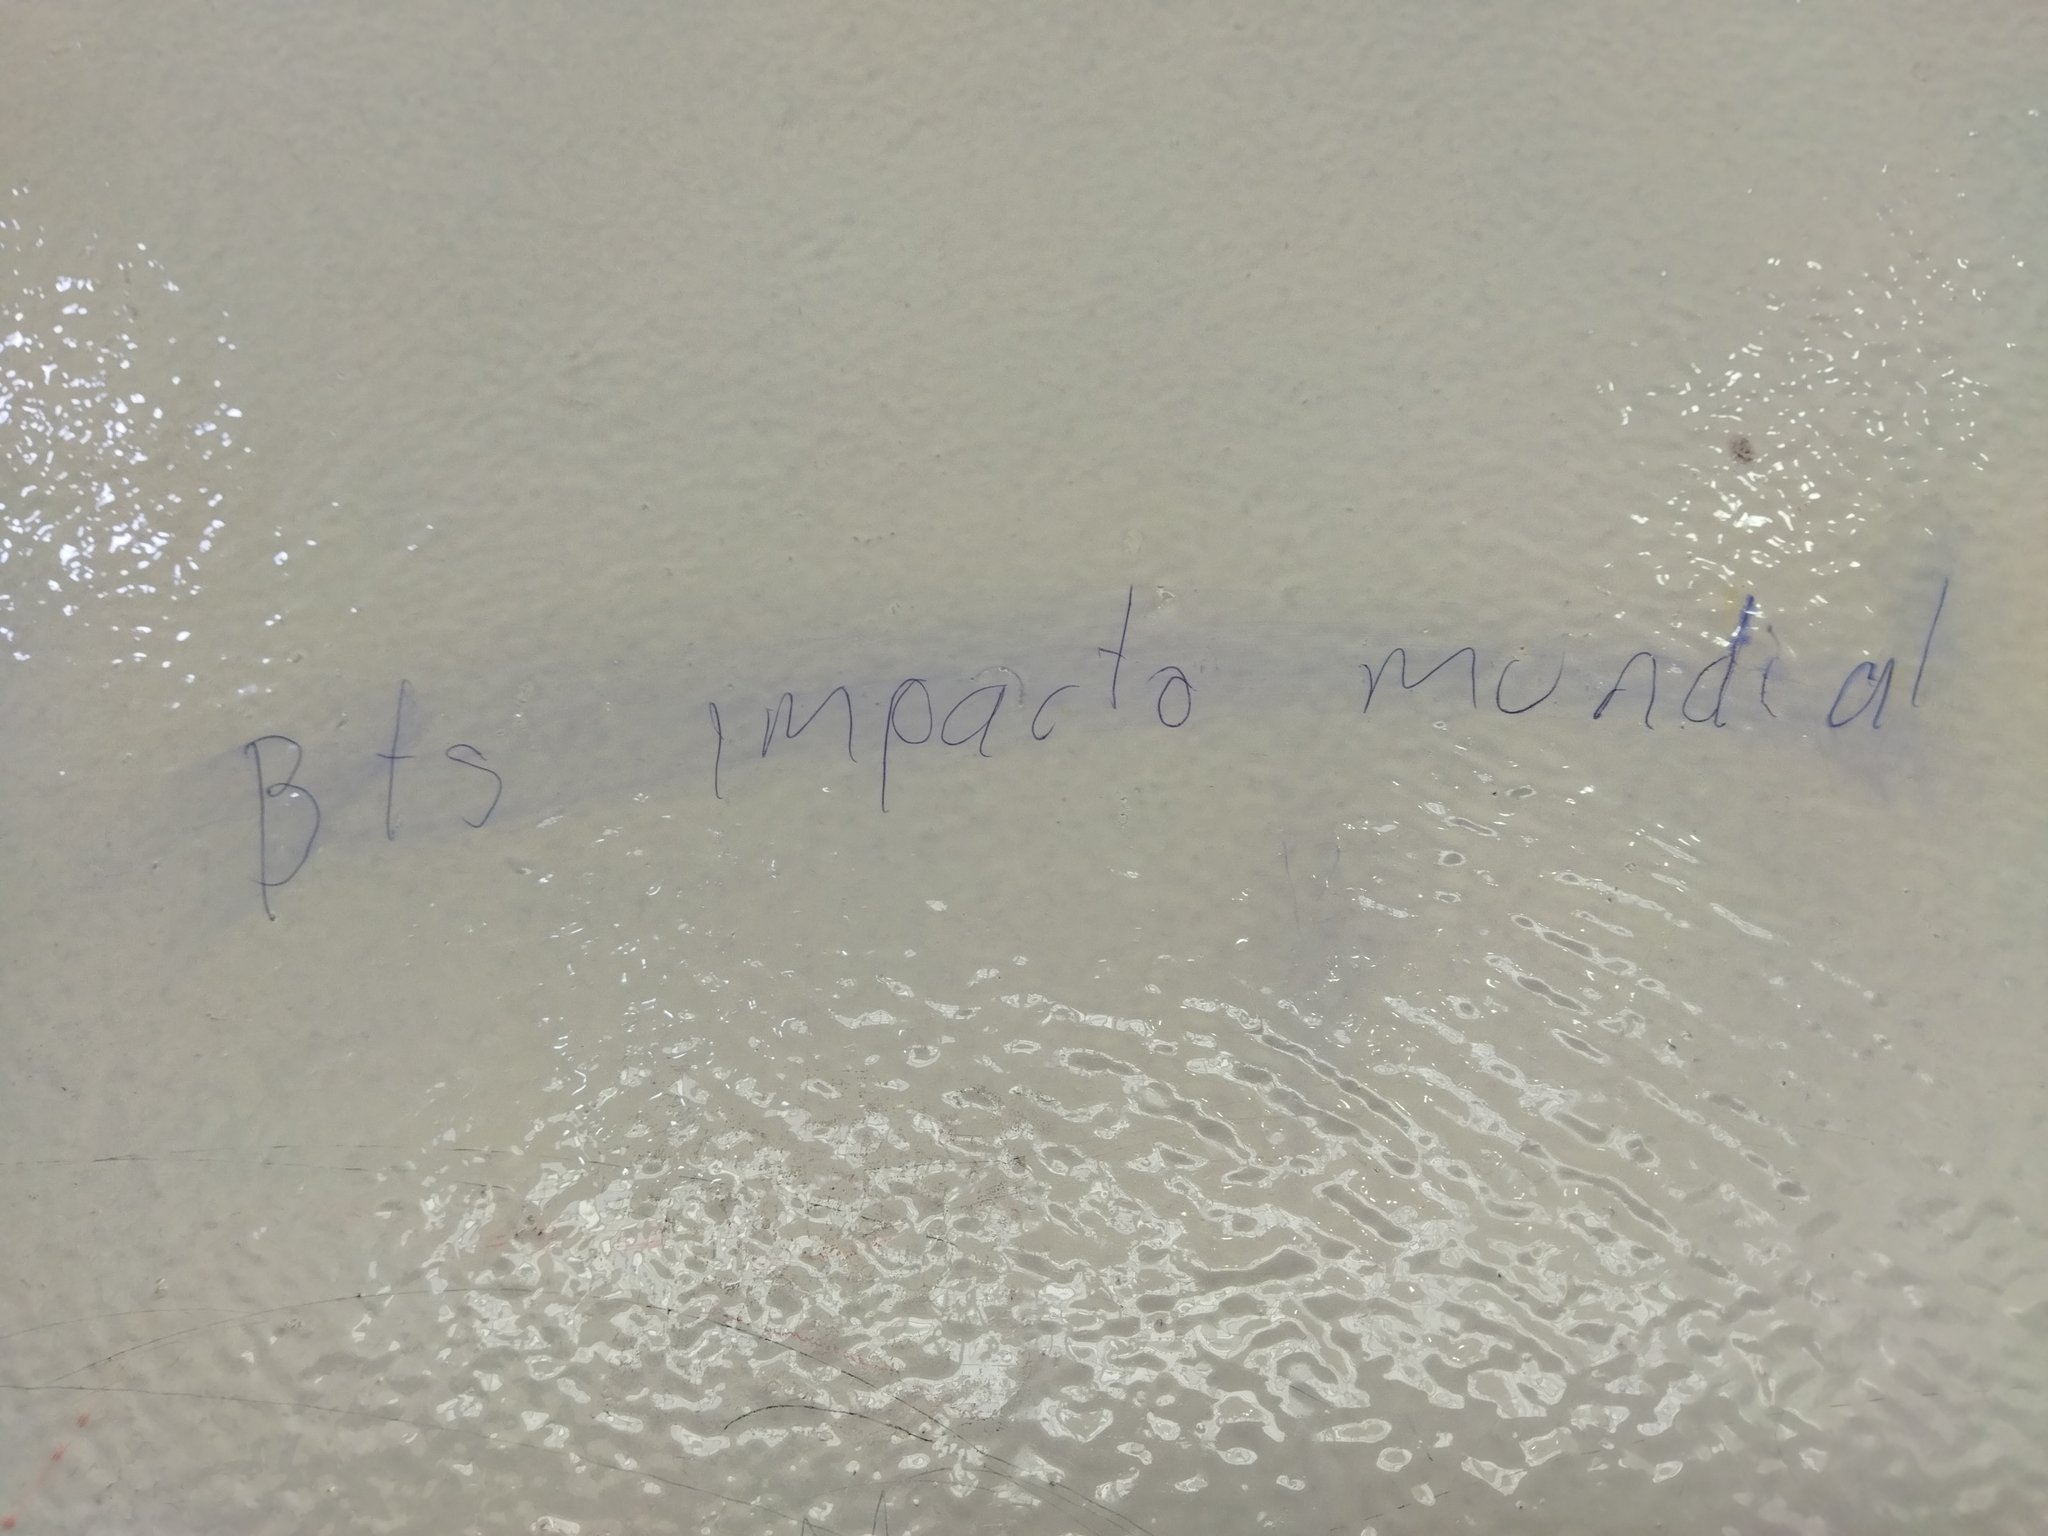 Bts impacto mundial